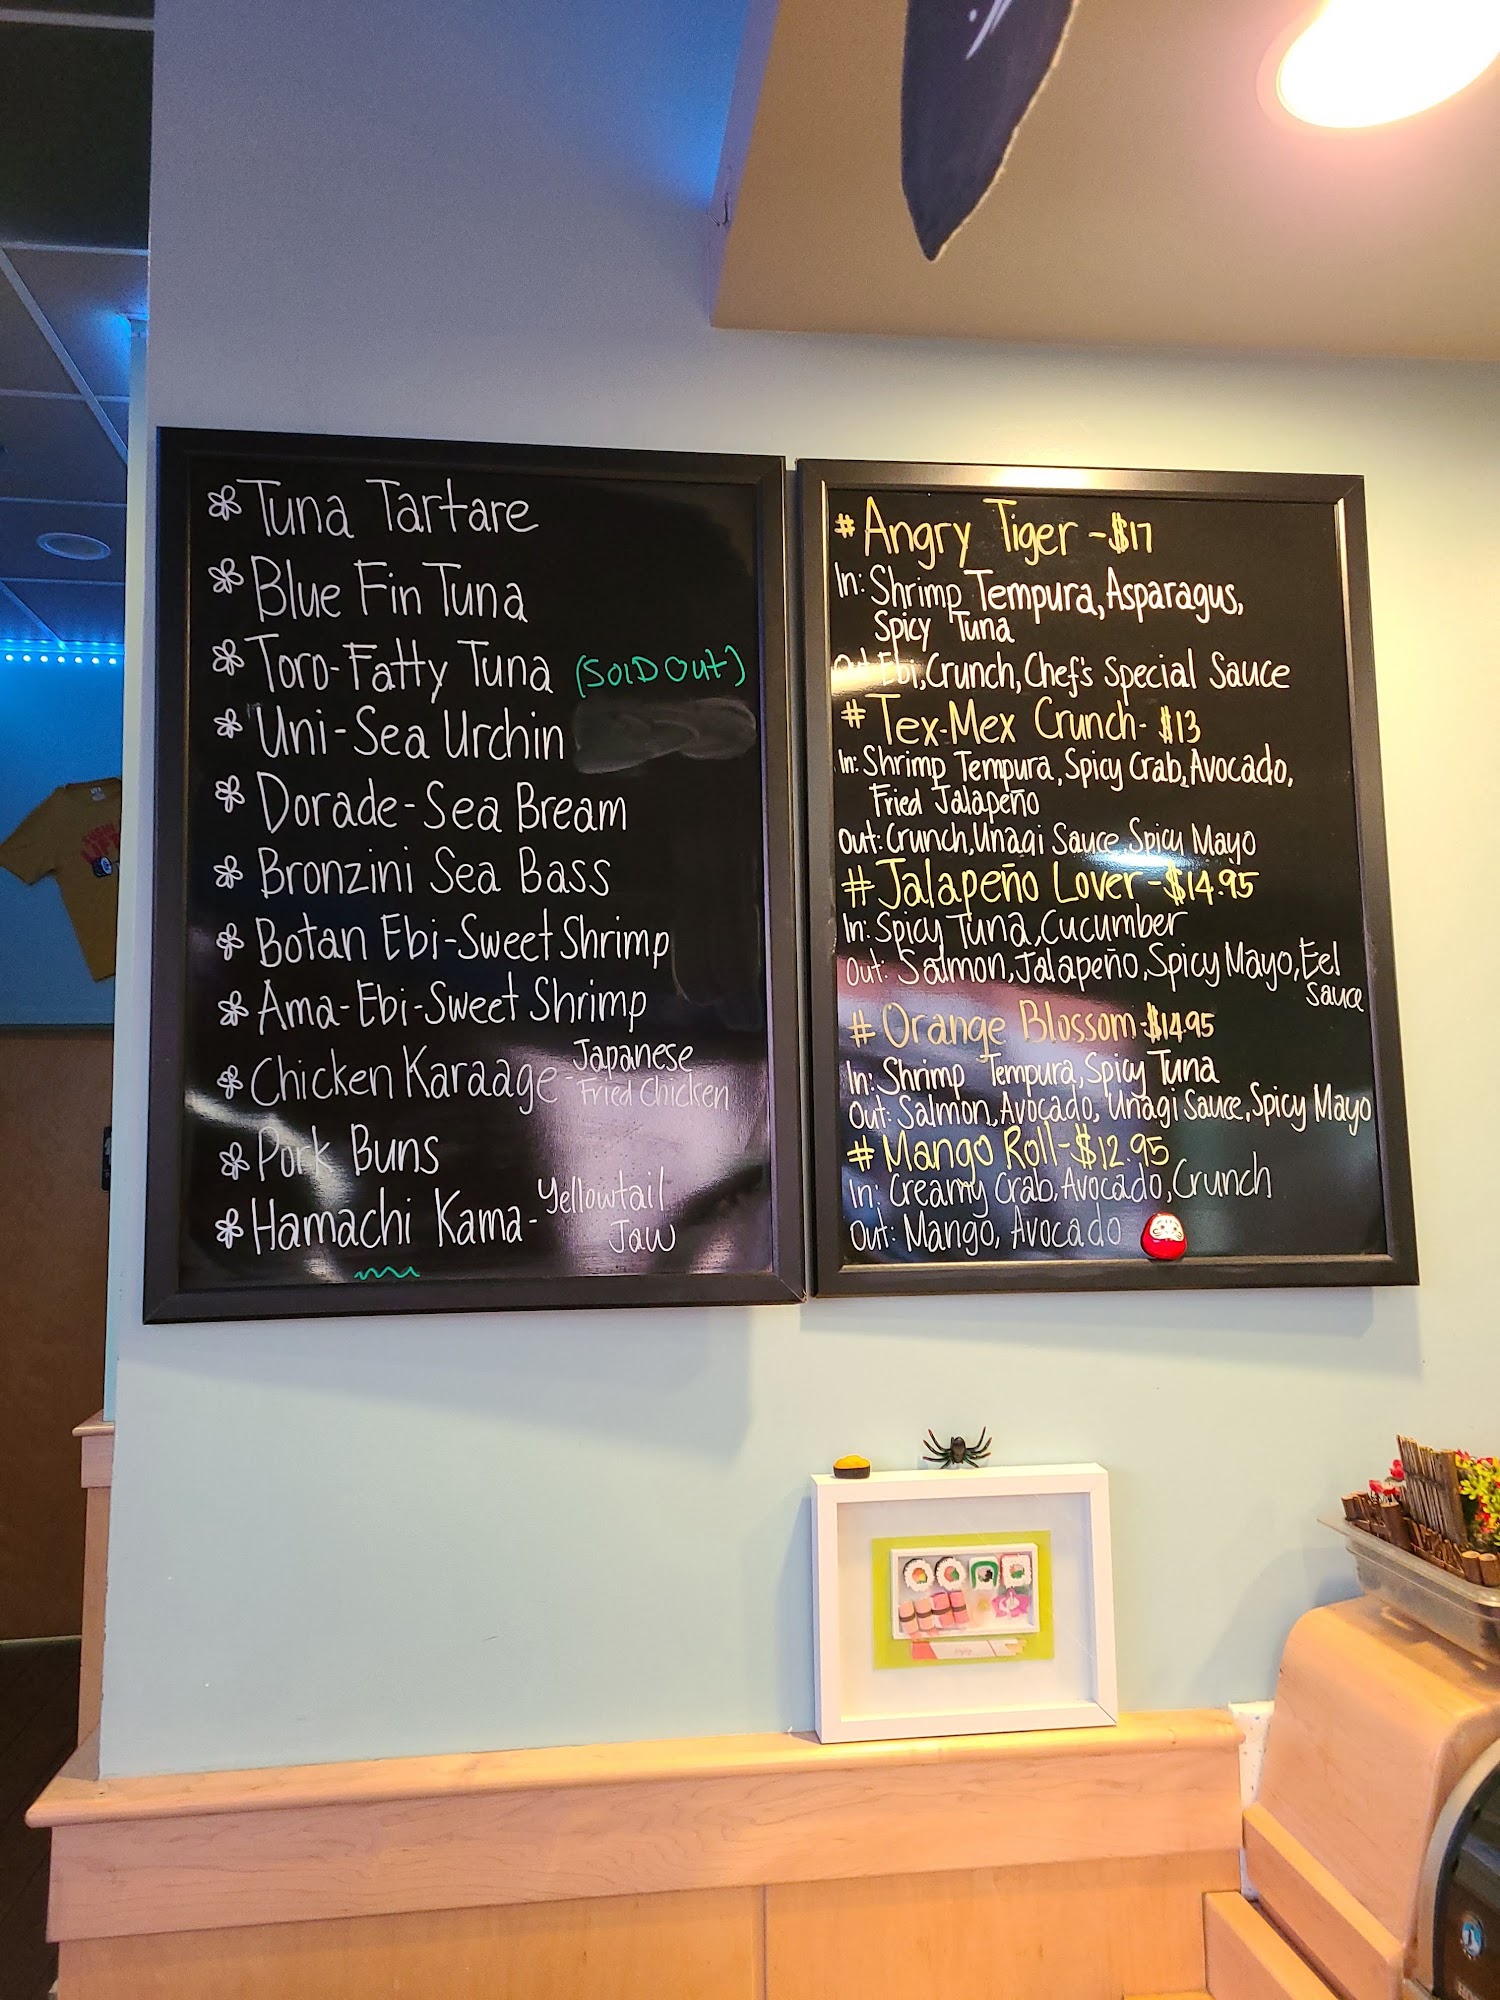 Tuna Tartare
Blue Fin Tuna
Toro-Fatty Tuna (SOLD Out)
Uni-Sea Urchin
Dorade-Sea Bream
Bronzini Sea Bass
Botan Ebi-Sweet Shrimp
Ama-Ebi-Sweet Shrimp
Chicken Karaage-Japanese
Fried Chicken
Pork Buns
Hamachi Kama-Yellowtail
Jaw
# Angry Tiger -$17
In: Shrimp Tempura, Asparagus,
Spicy Tuna
Out: Ebi, Crunch, Chef's Special Sauce
# Tex-Mex Crunch- $13
In: Shrimp Tempura, Spicy Crab, Avocado,
Fried Jalapeño
Out: Crunch, Unagi Sauce, Spicy Mayo
# Jalapeño Lover-$14.95
In: Spicy Tuna, Cucumber
Out: Salmon, Jalapeño, Spicy Mayo, Eel
Sauce
# Orange Blossom-$14.95
In: Shrimp Tempura, Spicy Tuna
Out: Salmon, Avocado, Unagi Sauce, Spicy Mayo
# Mango Roll-$12.95
In: Creamy Crab, Avocado, Crunch
Out: Mango, Avocado